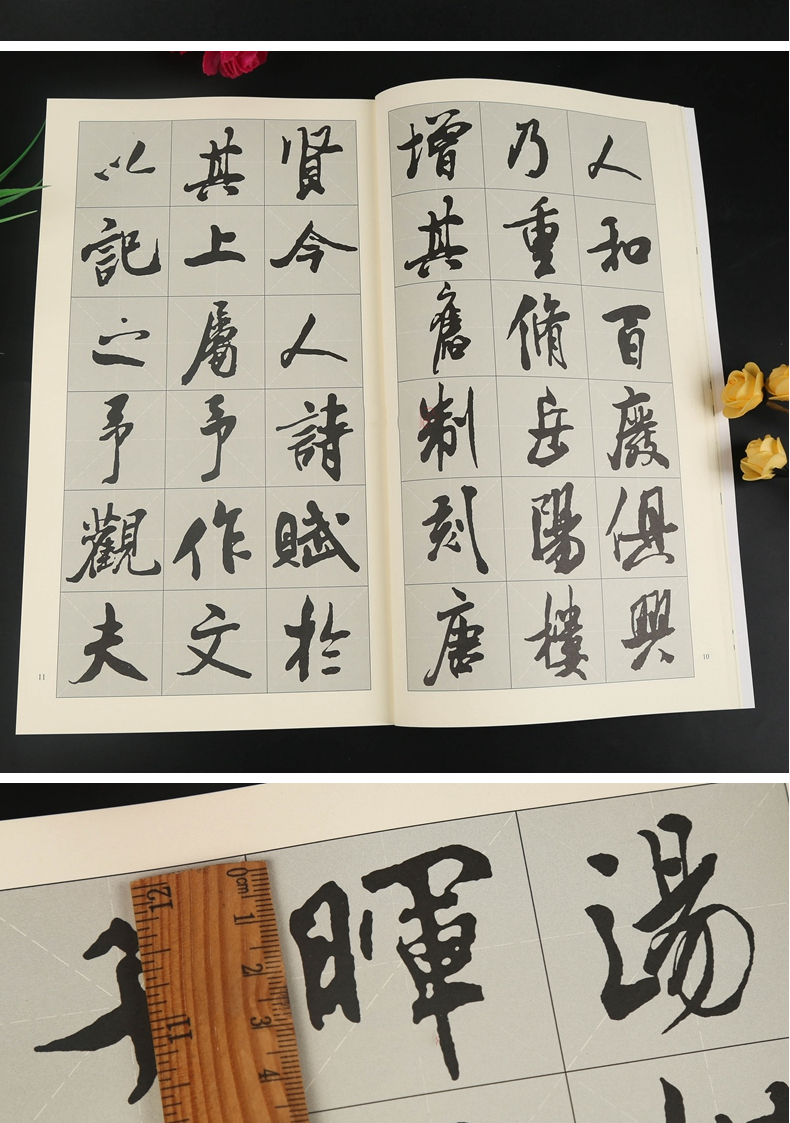 人和百廢俱興
乃重脩岳陽樓
增其舊制刻唐
賢今人詩賦於
其上屬予作文
以記之予觀夫
10
11
湯
暉
0cm 1 2 3 4
12 11